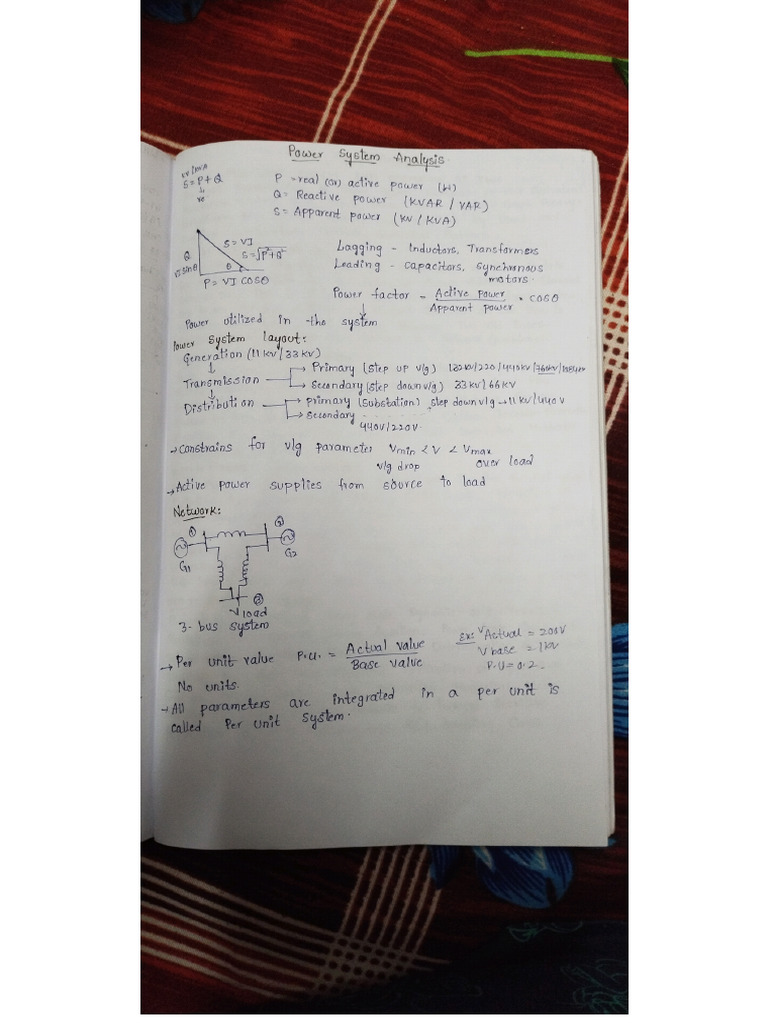 Power System Analysis
S = P + Q
P = real (or) active power
Q = Reactive power (KVAR / VAR)
S = Apparent power (KV / KVA)
S = VI
S = √P²+Q²
Q
θ
P = VI COSθ
Lagging - Inductors, Transformers
Leading - capacitors, synchronous
motors.
Power factor = Active power / Apparent power = COSθ
Power utilized in the system
Power System layout:
Generation (11 KV / 33 KV)
Transmission → Primary (step up v/g) 132KV/220/440KV/
→ Secondary (step down v/g) 33 KV / 66 KV
Distribution → primary (substation) step down v/g → 11 KV / 440 V
→ secondary
440V/220V.
→ constrains for v/g parameter Vmin < V < Vmax
v/g drop over load
→ Active power supplies from source to load
Network:
① ②
G1 G2
③
load
3-bus system
→ Per unit value P.U. = Actual value / Base value
Ex: V Actual = 200V
V base = 1KV
P.U = 0.2.
No units.
→ All parameters are integrated in a per unit is
called Per Unit System.